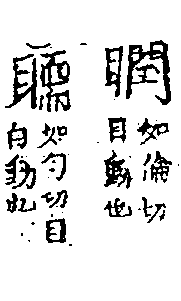 瞤
如倫切
目動也
如勺切目
自動也